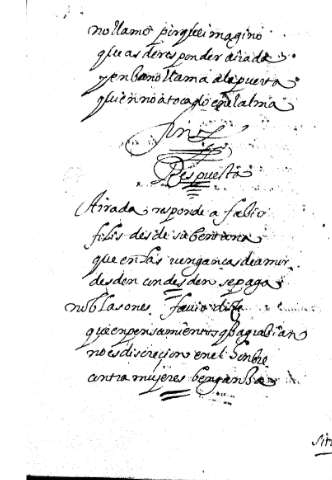 no llamo porque imagino
que as de responder airada
y en bano llama a la puerta
quien no a tocado en el alma
fin
Respuesta
Airada responde a fabio
filis desde su bentana
que en las venganças de amor
desden con desden se paga
no blasones fauio
que en pensamientos
no es discrecion en el honbre
contra mujeres bengança